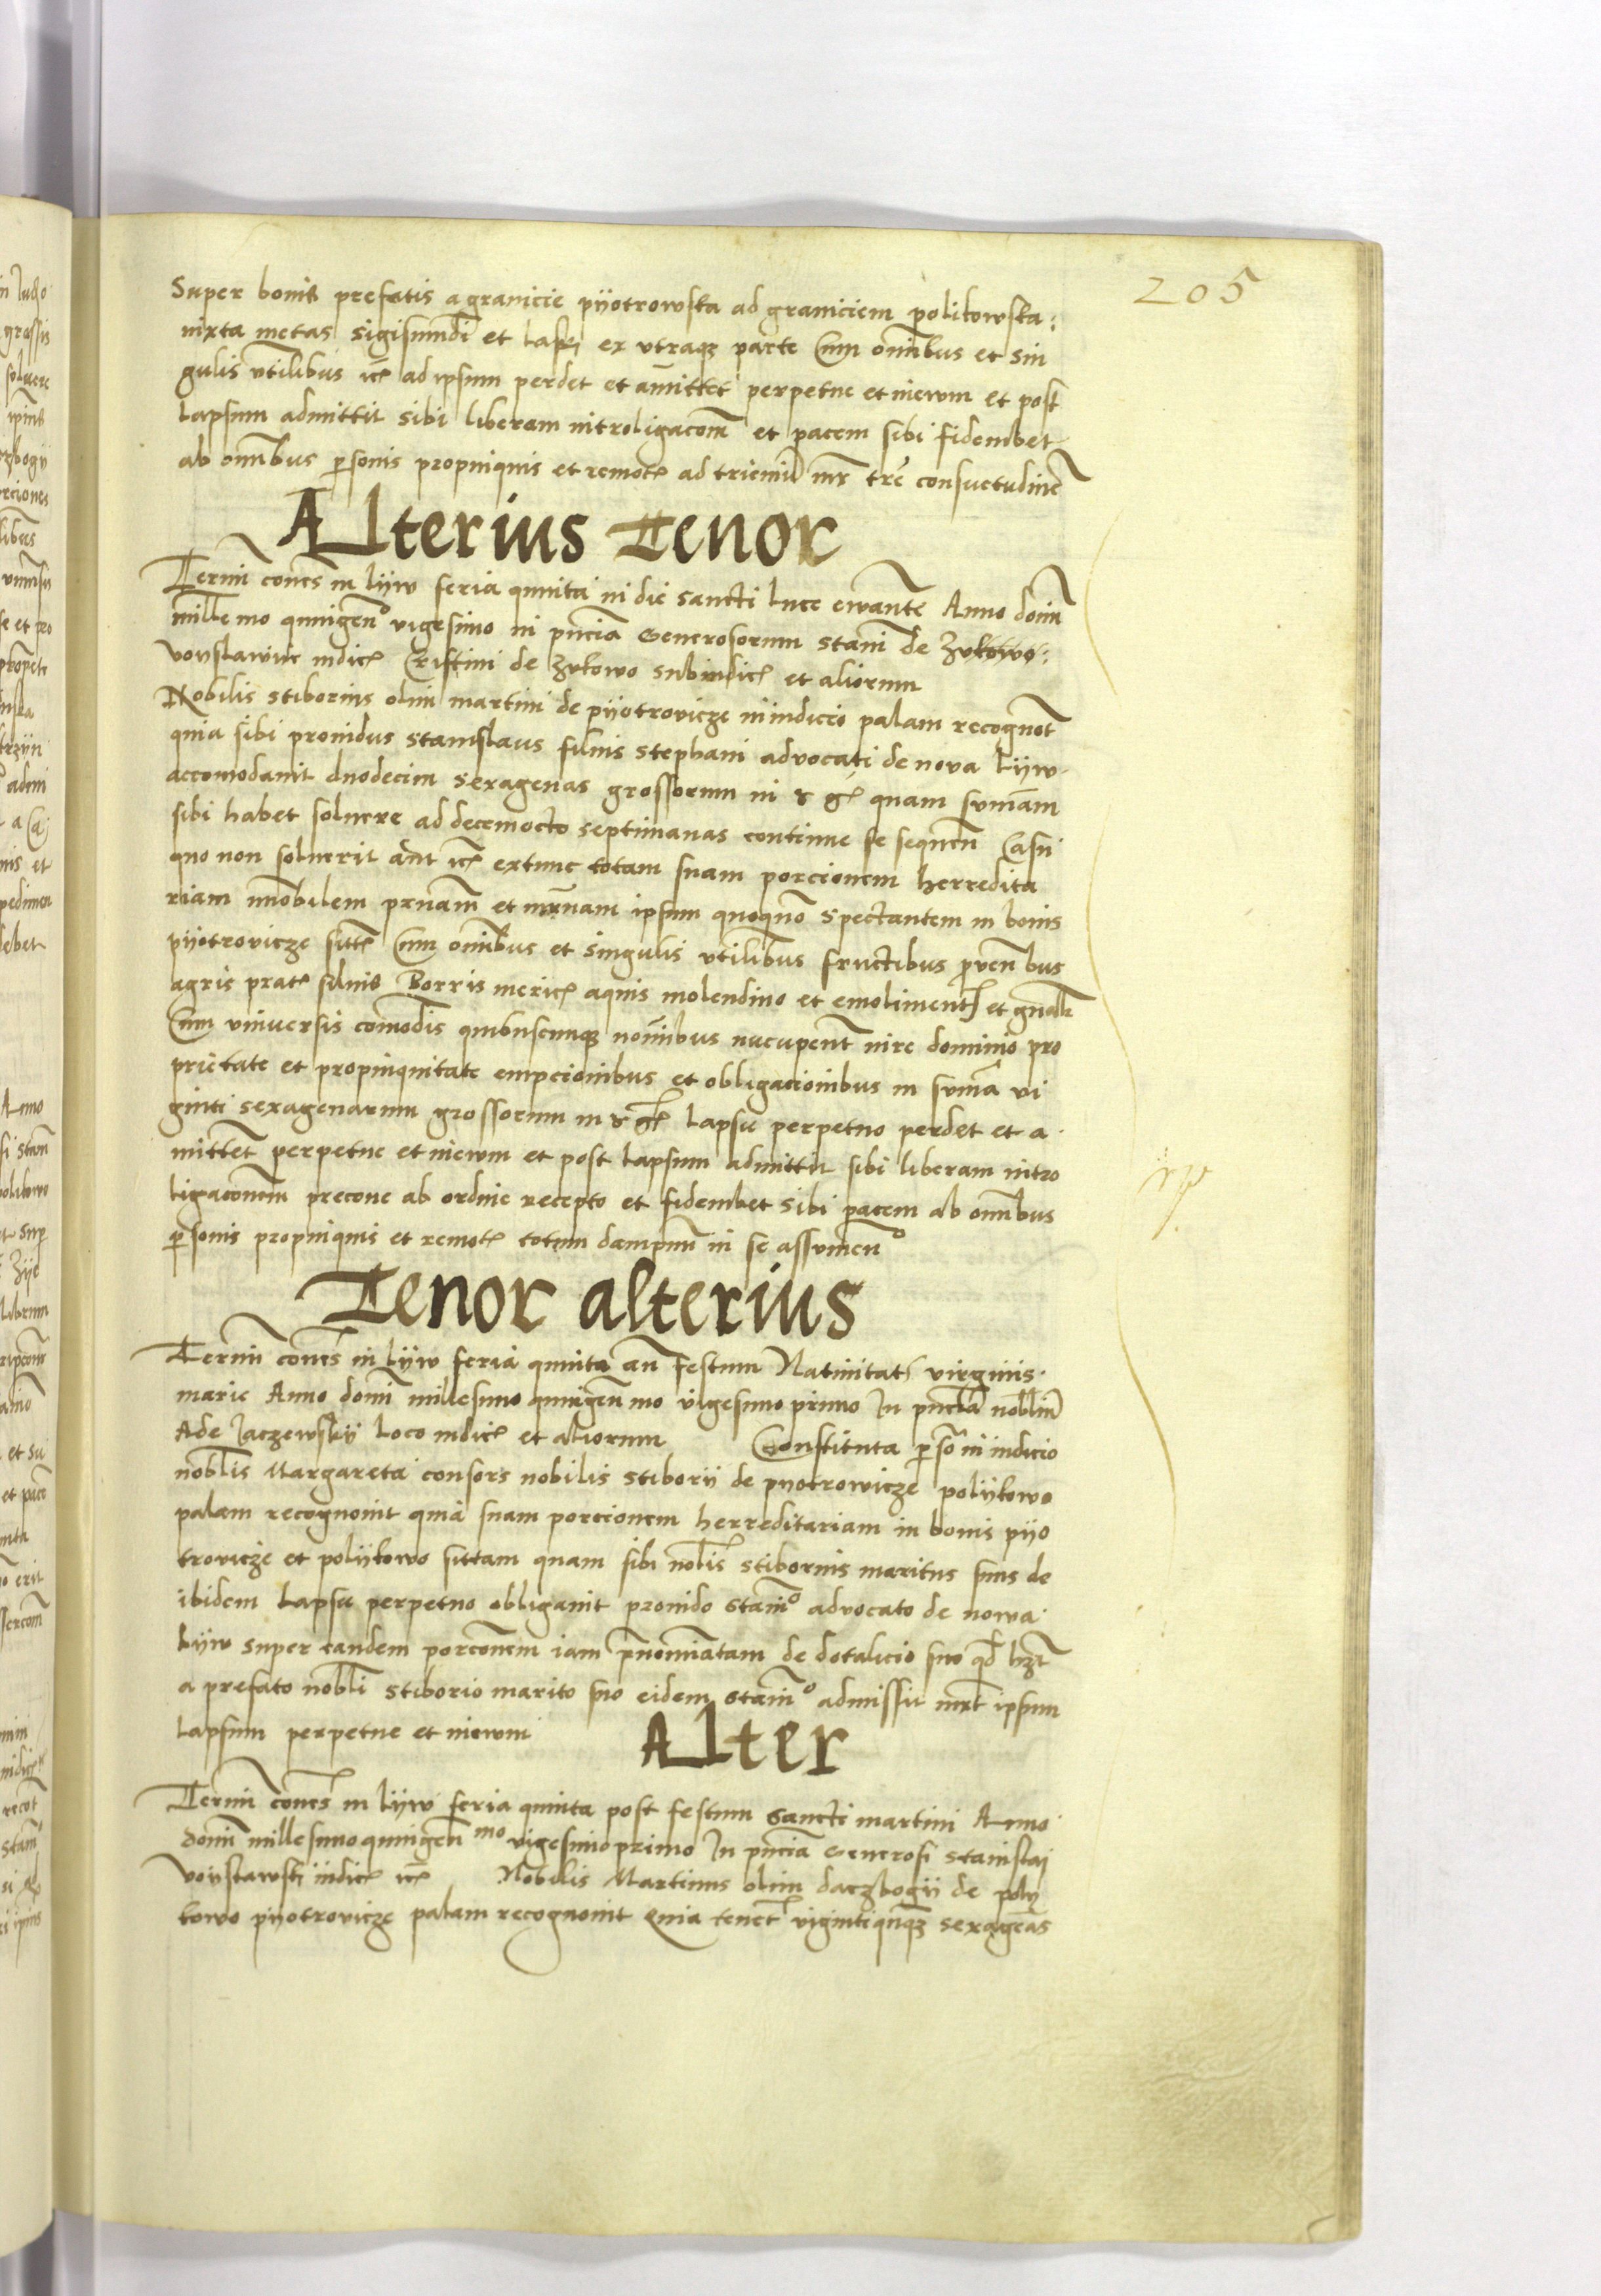 205
Super bonis prefatis a granicie pyotrowska ad graniciem politowska:
iuxta metas sigismundi et laski ex utraqz parte Cum omnibus et sin
gulis utilibus etc ad ipsum perdet et amittet perpetue et inewm et post
lapsum admittit sibi liberam intoligacom et pacem sibi fideiubet
ab omnibus personis propinquis et remotis ad trienniu iux tre consuetudine
Alterius Tenor
Termi cones in lyw feria quinta in die sancti luce ewante Anno domi
millemo quingeno vigesimo in pncia Generosorum stani de Zukowo:
voyslawiue iudicis Cristini de Zukowo subiudicis et aliorum
Nobilis stiborius olim martini de pyotrovicze in iudicio palam recognot
quia sibi providus stanislaus filius stephani advocati de nova lyw
accomodavit duodecim sexagenas grossorum in quam summam
sibi habet solvere ad decemocto septimanas continue se sequen Casu
quo non solverit aut etc extunc totam suam porcionem herredita
riam imobilem prnam et mrnam ipsum quoquo spectantem in bonis
pyotrovicze sitte Cum omibus et singulis utilibus fructibus proven bus
agris pratis silvis Borris mericis aquis molendino et emolimentis et gnalr
Cum universis comodis quibuscunqz nomibus nucupent iure dominio pro
prietate et propinquitate empcionibus et obligacionibus in suma vi
ginti sexagenarum grossorum in lapsu perpetuo perdet et a
mittet perpetue et inewm et post lapsum admittit sibi liberam intro
ligaconem precone ab ordine recepto et fideiubet sibi pacem ab omibus
personis propinquis et remotis totum dampnum in se assumen
Tenor alterius
Termi cones in lyw feria quinta an festum Nativitatis virginis
marie Anno domi millesimo quingen mo vigesimo primo In pncia noblium
Ade Jaczewsky loco iudicis et aliorum Constituta perso in iudicio
noblis Margareta consors nobilis stiborii de pyotrowicze polytowo
palam recognovit quia suam porcionem herreditariam in bonis pyo
trovicze et polytowo sittam quam sibi noblis stiborius maritus suus de
ibidem lapsu perpetuo obligavit provido stanio advocato de nowa
lyw super eandem porconem iam prenominatam de dotalicio suo qd hzt
a prefato nobli stiborio marito suo eidem stanio admissit iuxt ipsum
lapsum perpetue et inewm
Alter
Termi cones in lyw feria quinta post festum sancti martini Anno
domi millesimo quingen mo vigesimo primo In pncia Generosi stanislai
voyslawsti iudicis etc Nobilis Martinus olim daczbogii de poly
towo pyotrovicze palam recognovit Quia tenet vigintiqnqz sexagenas